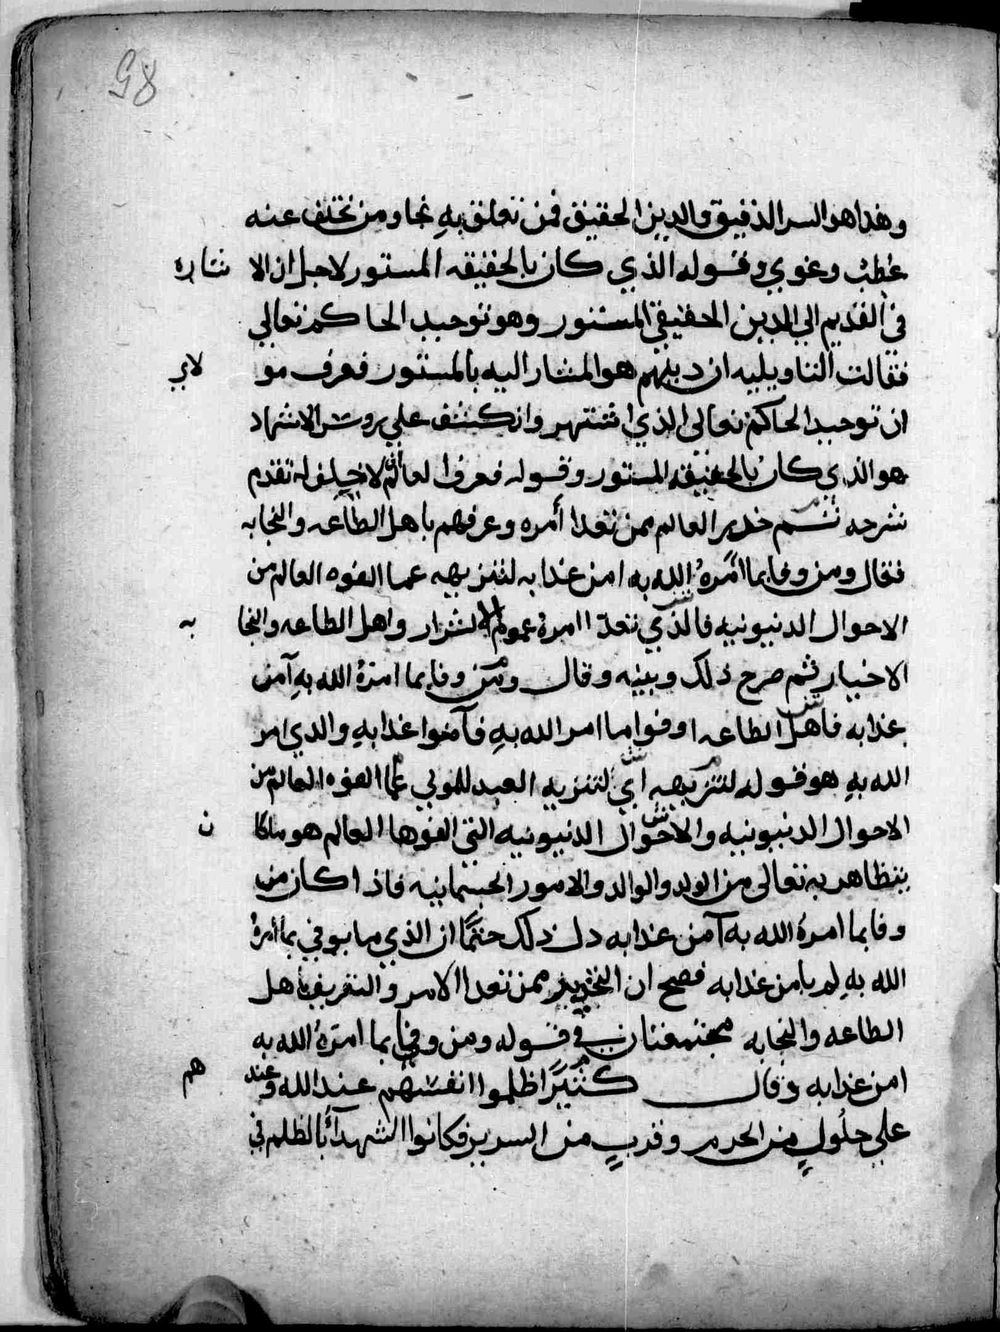 58
وهذا هو السر الدقيق والدين الحقيق فمن تعلق به نجا ومن تخلف عنه
عطب وغوي وقوله الذي كان بالحقيقه المستور لاجل ان الاشاره
في القديم الي الدين الحقيقي المستور وهو توحيد الحاكم تعالي
فقالت التاويليه ان دينهم هو المشار اليه بالمستور فعرف مولاي
ان توحيد الحاكم تعالى الذي اشتهر وانكشف علي روس الاشهاد
هو الذي كان بالحقيقه المستور وقوله فعرفوا لا خلف له تقدم
شرحه ثم حذر العالم ممن تعدا أمره وعرفهم باهل الطاعه والنجابه
فقال ومن وفا بما امره الله به امن عذابه لتنزيهه عما الفوه العالم من
الاحوال الدنيونيه فالذي تعدا امره عموم الاشرار واهل الطاعه والنجابه
الاخيار ثم صرح ذلك وبينه وقال ومن وفا بما امره الله به آمن
عذابه فاهل الطاعه اوفوا ما امر الله به فآمنوا عذابه والدي امر
الله به هو قوله لتنزيهه اي لتنزيه العبد للمولي عما الفوه العالم من
الاحوال الدنيونيه والاحوال الدنيونيه التي الفوها العالم هو ما كان
يتظاهر به تعالى من الولد والوالد والامور الجسمانيه فاذا كان من
وفا بما امره الله به آمن عذابه دل ذلك حتمًا ان الذي ما يوفي بما امره
الله به لم يامن عذابه فصح ان التحذير ممن تعدا الامر والتعريف باهل
الطاعه والنجابه مجتمعتان في قوله ومن وفا بما امره الله به
امن عذابه وقال كثيرًا ظلموا انفسهم عند الله وعندهم
علي حلولٍ من الحرم وقربٍ من السرير فكانوا الشهدآ بالظلم في